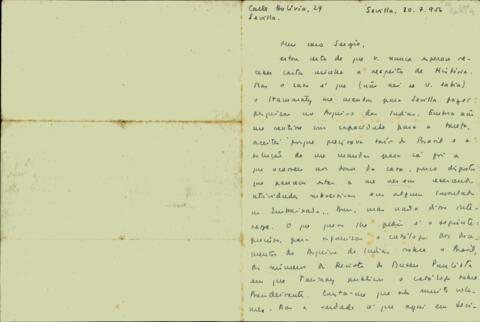 Calle Bolivia, 29 Sevilla, 20.7.956
Sevilla.
Meu caro Sergio,
estou certo de que V. nunca esperou re-
ceber carta minha a respeito de História.
Mas o caso é que (não sei se V. sabia)
o Itamaraty me mandou para Sevilla fazer
pesquisas no Arquivo das Indias. Embora não
me sentisse em capacidade para a tarefa,
aceitei porque precisava sair do Brasil e a
solução de me mandar para cá foi a
que ocorreu aos donos da casa, pouco dispostos
que
atividades subversivas em algum Consulado
ou Embaixada... Bem, mas nada disso inte-
ressa. O que quero lhe pedir é o seguinte:
preciso, para organizar o catálogo dos docu-
mentos do Arquivo de Indias sobre o Brasil,
do número da Revista do Museu Paulista
em que Taunay publicou o catálogo sobre
Bandeirante. que são muito
Mas a verdade é que aqui em